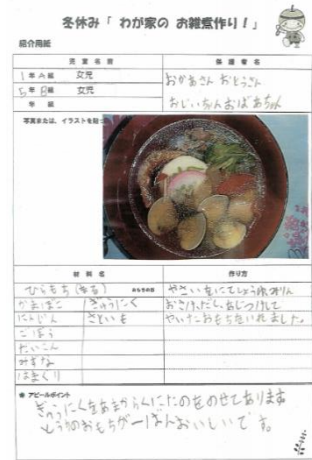 冬休み「 わが家の お雑煮作り！」
紹介用紙
児 童 名 前
保 護 者 名
1年A組 女児
おかあさん おとうさん
5年B組 女児
年 組
おじいちゃん おばあちゃん
写真または、イラストを貼っ
材 料 名
作り方
ひらもち
やさいをにてしょうゆ、みりん
かまぼこ ぎゅうにく
おさけ、だし、あじつけして
にんじん さといも
やいたおもちをいれました。
ごぼう
だいこん
みずな
はまぐり
● アピールポイント
ぎゅうにくをあまからくにたのをのせてあります
とうふのおもちが一ばんおいしいです。